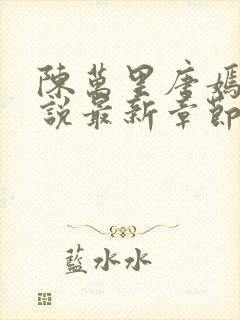 陳萬里唐嫣
說最新章節
藍水水